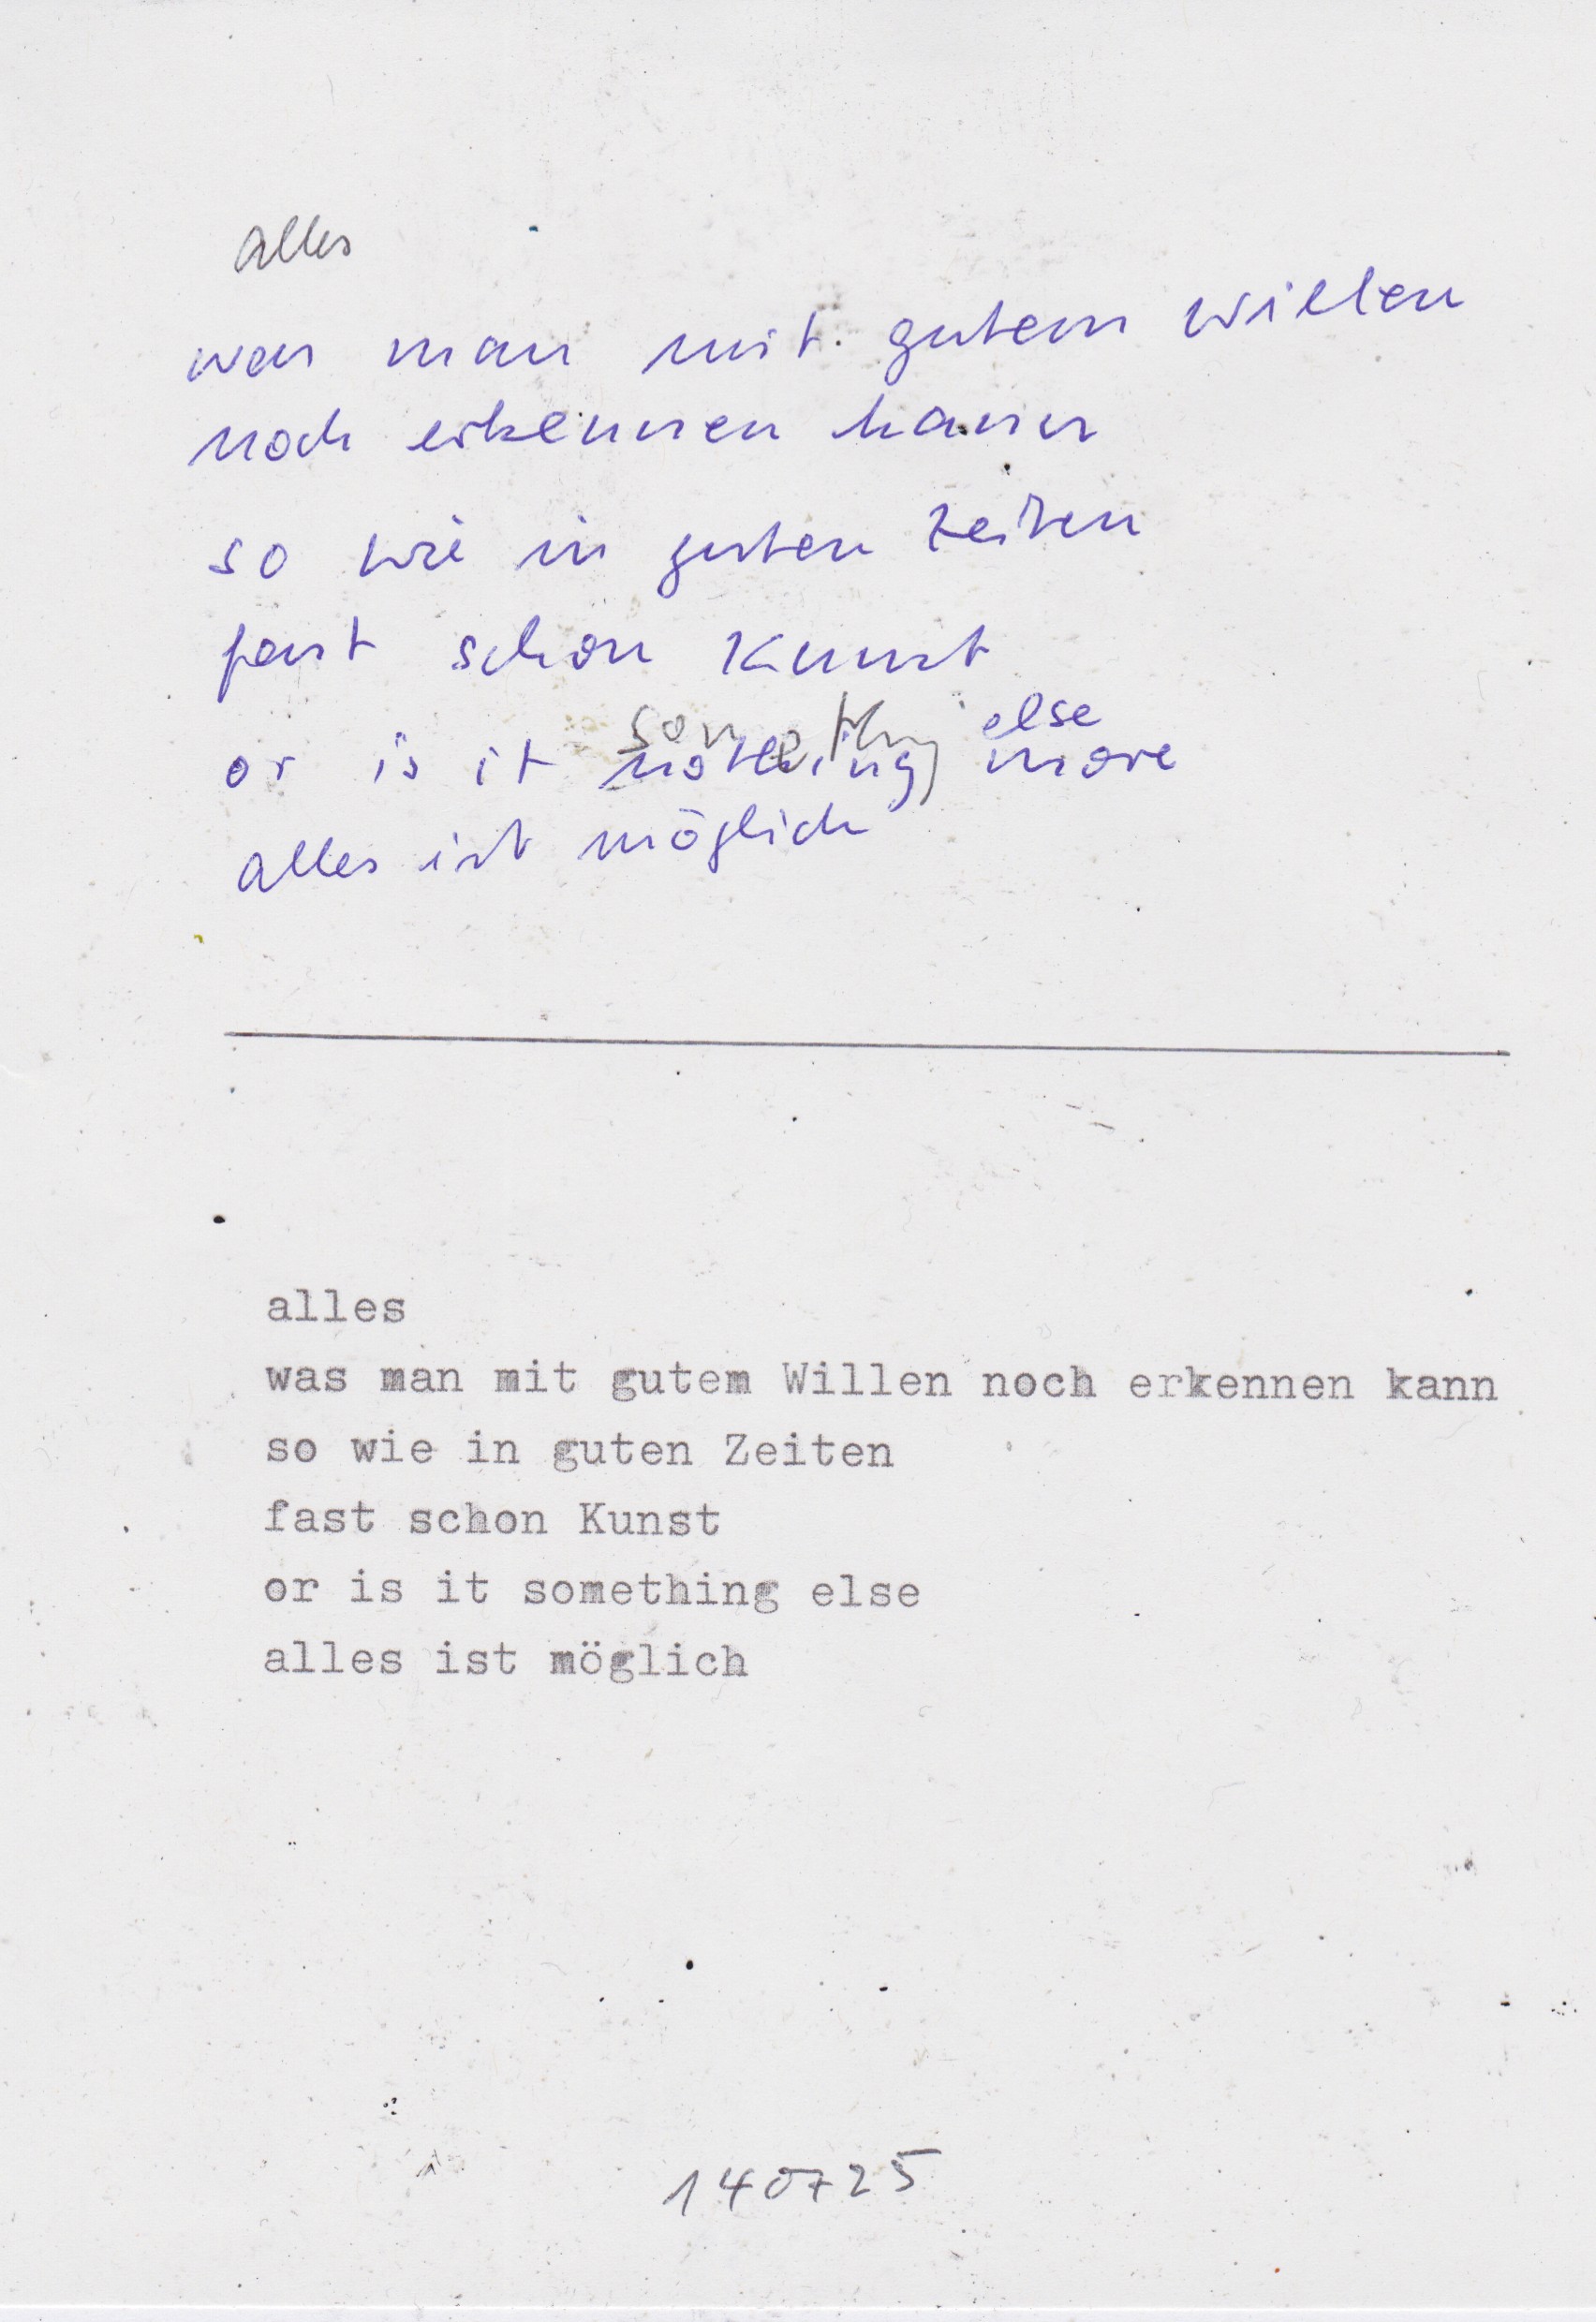 alles
was man mit gutem willen
noch erkennen kann
so wie in guten Zeiten
fast schon Kunst
something else
or is it nothing more
alles ist möglich
alles
was man mit gutem Willen noch erkennen kann
so wie in guten Zeiten
fast schon Kunst
or is it something else
alles ist möglich
140725